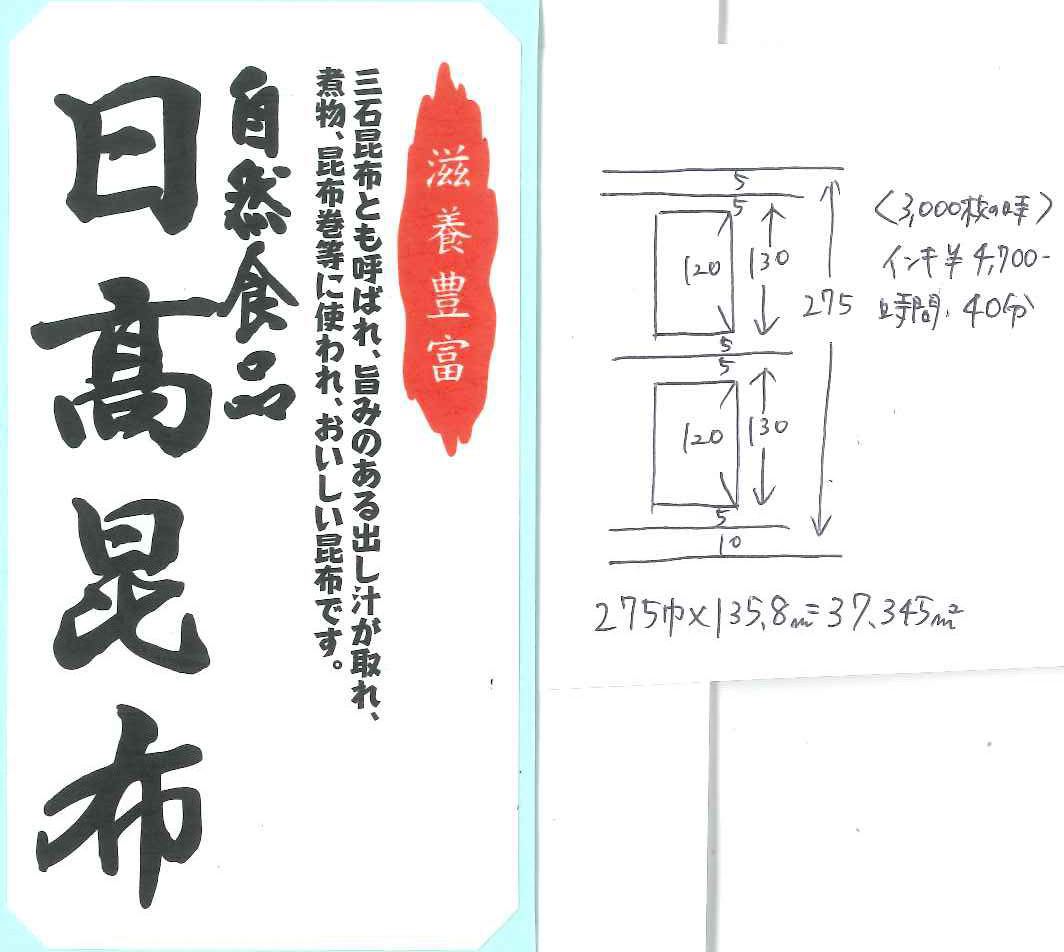 滋養豊富
三石昆布とも呼ばれ、旨みのある出し汁が取れ、
煮物、昆布巻等に使われ、おいしい昆布です。
自然食品
日高昆布
5
5
120
130
275
5
5
120
130
5
10
〈3,000枚の時〉
インキ¥4,700-
時間. 40分
275巾×135.8m=37.345m²